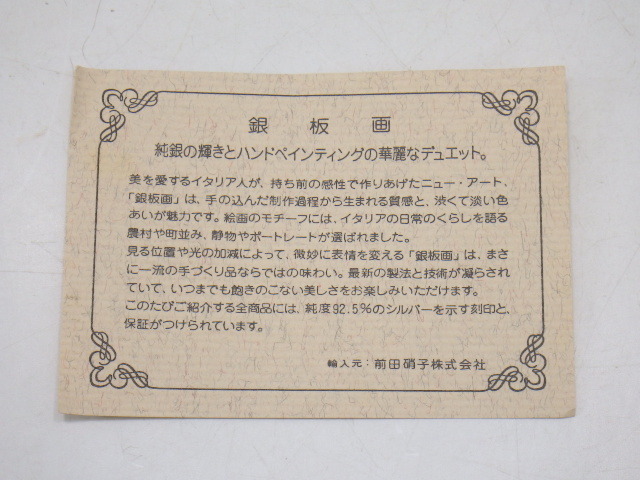 銀板画
純銀の輝きとハンドペインティングの華麗なデュエット。
美を愛するイタリア人が、持ち前の感性で作りあげたニュー・アート、
「銀板画」は、手の込んだ制作過程から生まれる質感と、渋くて淡い色
あいが魅力です。絵画のモチーフには、イタリアの日常のくらしを語る
農村や町並み、静物やポートレートが選ばれました。
見る位置や光の加減によって、微妙に表情を変える「銀板画」は、まさ
に一流の手づくり品ならではの味わい。最新の製法と技術が凝らされ
ていて、いつまでも飽きのこない美しさをお楽しみいただけます。
このたびご紹介する全商品には、純度92.5%のシルバーを示す刻印と、
保証がつけられています。
輸入元：前田硝子株式会社